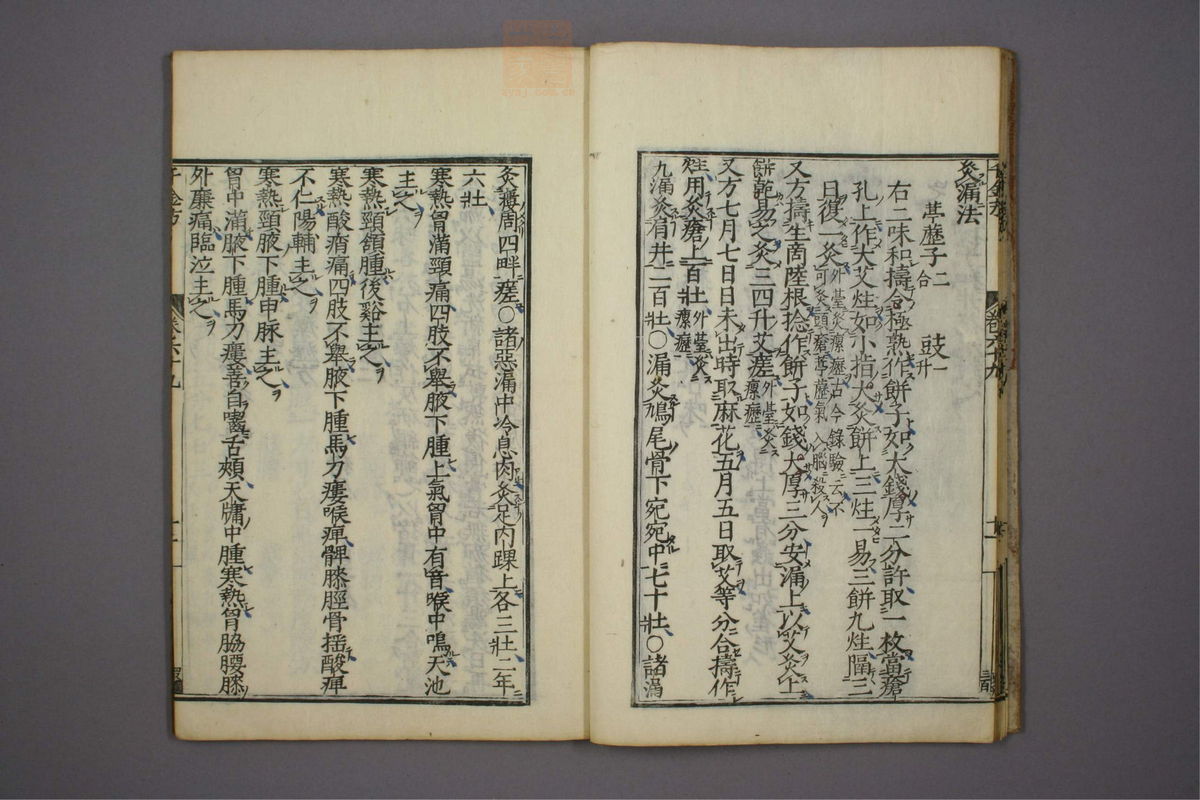 灸漏法
葶藶子二合　豉一升
右二味和擣令極熟作餅子如大錢厚二分許取一枚當瘡
孔上作大艾炷如小指大灸餅上三炷一易三餅九炷隔三
日復一灸外臺灸瘰癧古今錄驗云不可灸頭瘡葶藶氣入腦殺人
又方擣生商陸根捻作餅子如錢大厚三分安漏上以艾灸上
餅乾易之灸三四升艾瘥外臺灸瘰癧
又方七月七日日未出時取麻花五月五日取艾等分合擣作
炷用灸瘡上百壯外臺灸瘰癧
九漏灸肩井二百壯○漏灸鳩尾骨下宛宛中七十壯○諸漏
灸瘻周四畔瘥○諸惡漏中冷息肉灸足內踝上各三壯二年
六壯
寒熱胷滿頸痛四肢不舉腋下腫上氣胷中有音喉中鳴天池
主之
寒熱頸頷腫後谿主之
寒熱酸痟痛四肢不舉腋下腫馬刀瘻喉痺髀膝脛骨揺酸痺
不仁陽輔主之
寒熱頸腋下腫申脉主之
胷中滿腋下腫馬刀瘻善自嚙舌頰天牖中腫寒熱胷脇腰膝
外廉痛臨泣主之
千金方
卷六十九